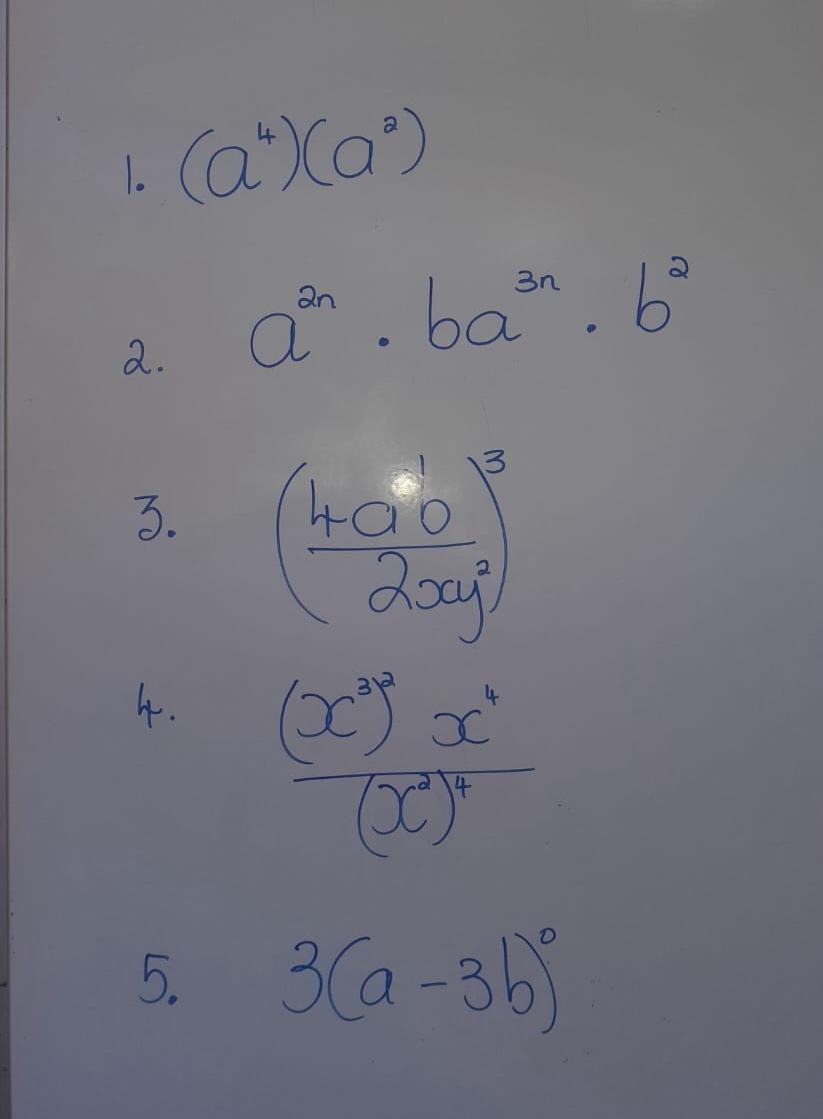 1. (a⁴)(a²)
2. a²ⁿ . ba³ⁿ . b²
3. (4ab / 2xy²)³
4. (x³)² x⁴ / (x²)⁴
5. 3(a - 3b)⁰